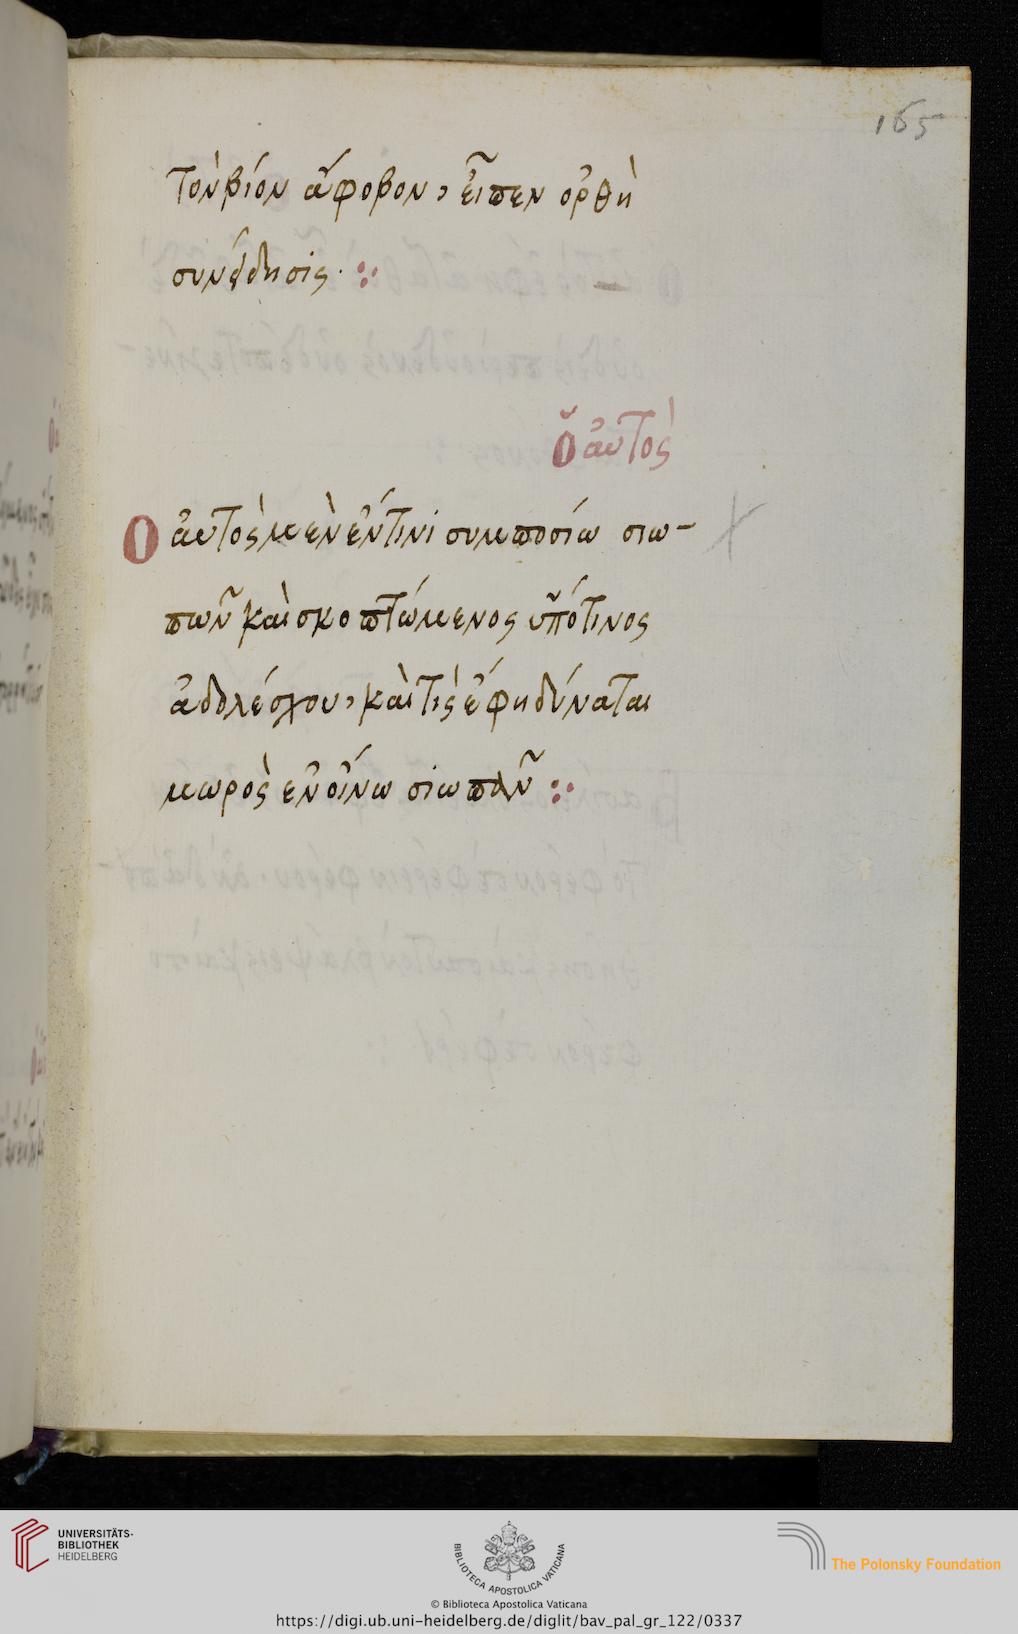 165
τὸν βίον ἄφοβον, εἶπεν ὀρθὴ
συνείδησις·
ὁ αὐτὸς
Ο αὐτὸς μὲν ἔν τινι συμποσίω σιω-
πῶν καὶ σκοπτώμενος ὑπό τινος
ἀδολέσχου, καὶ τίς ἔφη δύναται
μωρὸς ἐν οἴνω σιωπᾶν
UNIVERSITÄTS-
BIBLIOTHEK
HEIDELBERG
BIBLIOTECA APOSTOLICA VATICANA
The Polonsky Foundation
© Biblioteca Apostolica Vaticana
https://digi.ub.uni-heidelberg.de/diglit/bav_pal_gr_122/0337